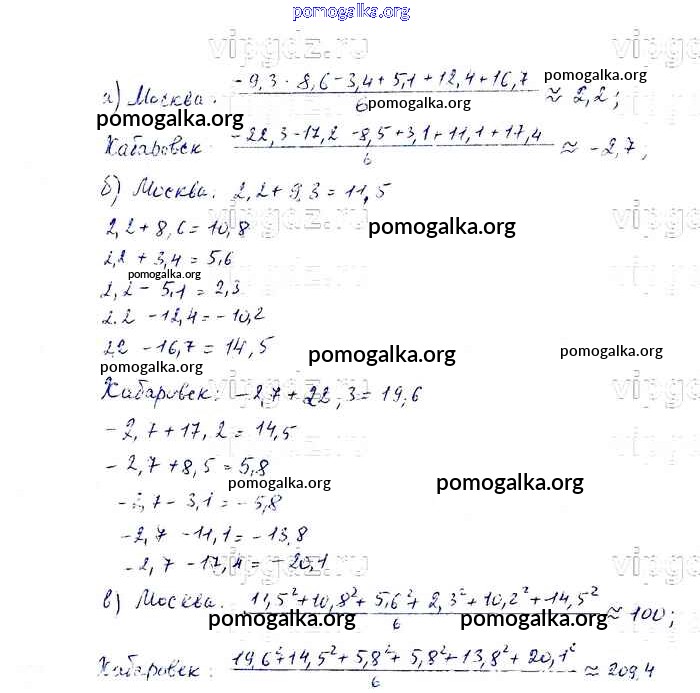 pomogalka.org
vipgdz.ru
а) Москва: (-9,3 - 8,6 - 3,4 + 5,1 + 12,4 + 16,7)/6 ≈ 2,2;
pomogalka.org
pomogalka.org
pomogalka.org
Хабаровск (-22,3 - 17,2 - 8,5 + 3,1 + 11,1 + 17,4)/6 ≈ -2,7;
б) Москва: 2,2 + 9,3 = 11,5
2,2 + 8,6 = 10,8
pomogalka.org
2,2 + 3,4 = 5,6
pomogalka.org
2,2 - 5,1 = 2,3
2.2 - 12,4 = -10,2
22 - 16,7 = 14,5
pomogalka.org
pomogalka.org
pomogalka.org
Хабаровск: -2,7 + 22,3 = 19,6
-2,7 + 17,2 = 14,5
-2,7 + 8,5 = 5,8
pomogalka.org
pomogalka.org
,7 - 3,1 = -5,8
-2,7 - 11,1 = -13,8
-2,7 - 17,4 = -20,1
в) Москва. (11,5² + 10,8² + 5,6² + 2,3² + 10,2² + 14,5²)/6 ≈ 100;
pomogalka.org
pomogalka.org
Хабаровск: (19,6² + 14,5² + 5,8² + 5,8² + 13,8² + 20,1²)/6 ≈ 209,4
pomogalka.org
pomogalka.org